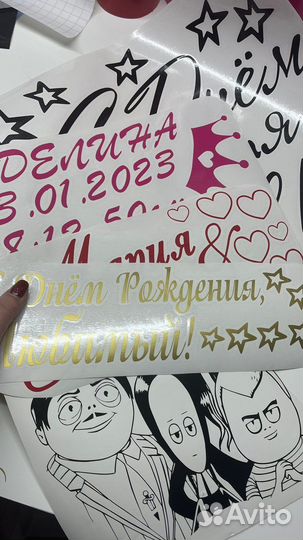 Днём
ДЕЛИНА
3.01.2023
Мария &
Днём Рождения,
любимый!
Avito